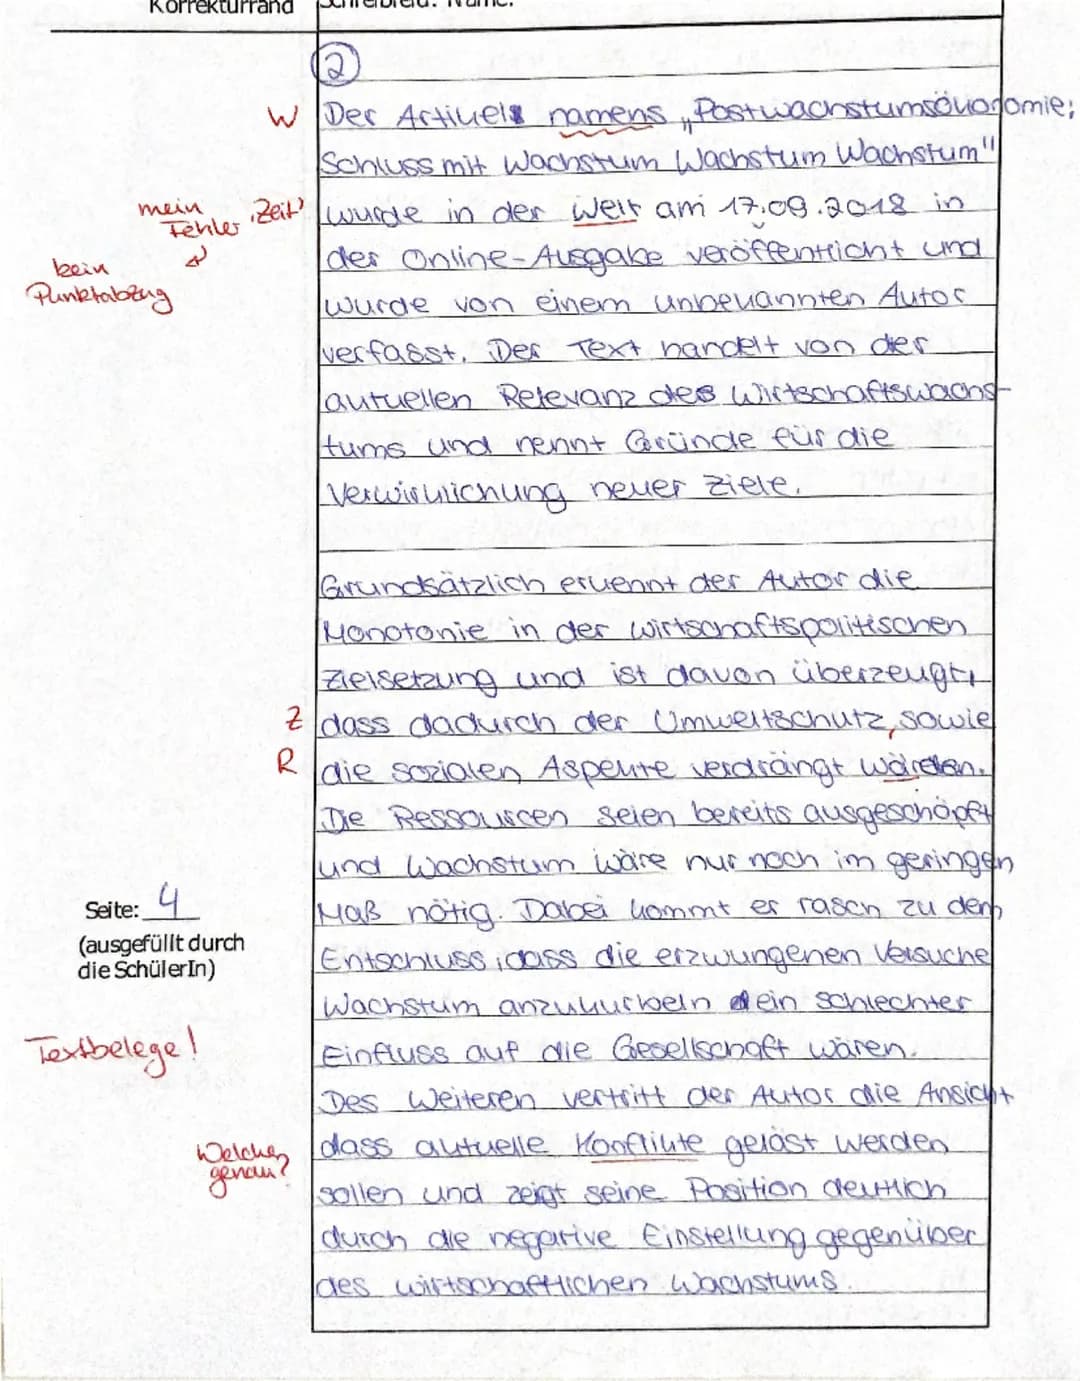 Korrekturrand Schreibfeld: Name:
2
W Der Artikel namens „Postwachstumsökonomie:
Schluss mit Wachstum Wachstum Wachstum"
mein Fehler 'Zeit' wurde in der Welt am 17.09.2018 in
der Online-Ausgabe veröffentlicht und
kein Punktabzug wurde von einem unbekannten Autor
verfasst. Der Text handelt von der
aktuellen Relevanz des Wirtschaftswachs-
tums und nennt Gründe für die
Verwirklichung neuer Ziele.
Grundsätzlich erkennt der Autor die
Monotonie in der wirtschaftspolitischen
Zielsetzung und ist davon überzeugt,
Z dass dadurch der Umweltschutz, sowie
R die sozialen Aspekte verdrängt wärden.
Die Ressourcen seien bereits ausgeschöpft
und Wachstum wäre nur noch im geringen
Maß nötig. Dabei kommt er rasch zu dem
Entschluss, dass die erzwungenen Versuche
Wachstum anzukurbeln ein schlechter
Einfluss auf die Gesellschaft wären.
Des Weiteren vertritt der Autor die Ansicht
dass aktuelle Konflikte gelöst werden
sollen und zeigt seine Position deutlich
durch die negative Einstellung gegenüber
des wirtschaftlichen Wachstums.
Seite: 4
(ausgefüllt durch
die SchülerIn)
Textbelege!
Welche
genau?